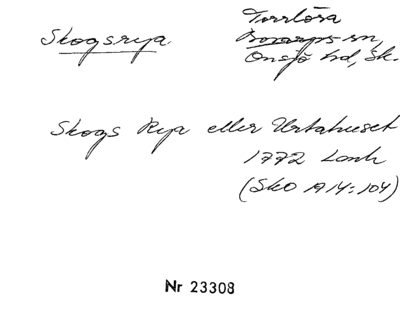 Torrlösa
Skogsrya Bosarps sn,
Onsjö hd, Sk.
Skogs Rya eller Urtahuset
1772 Lanh
(SkO A14:104)
Nr 23308